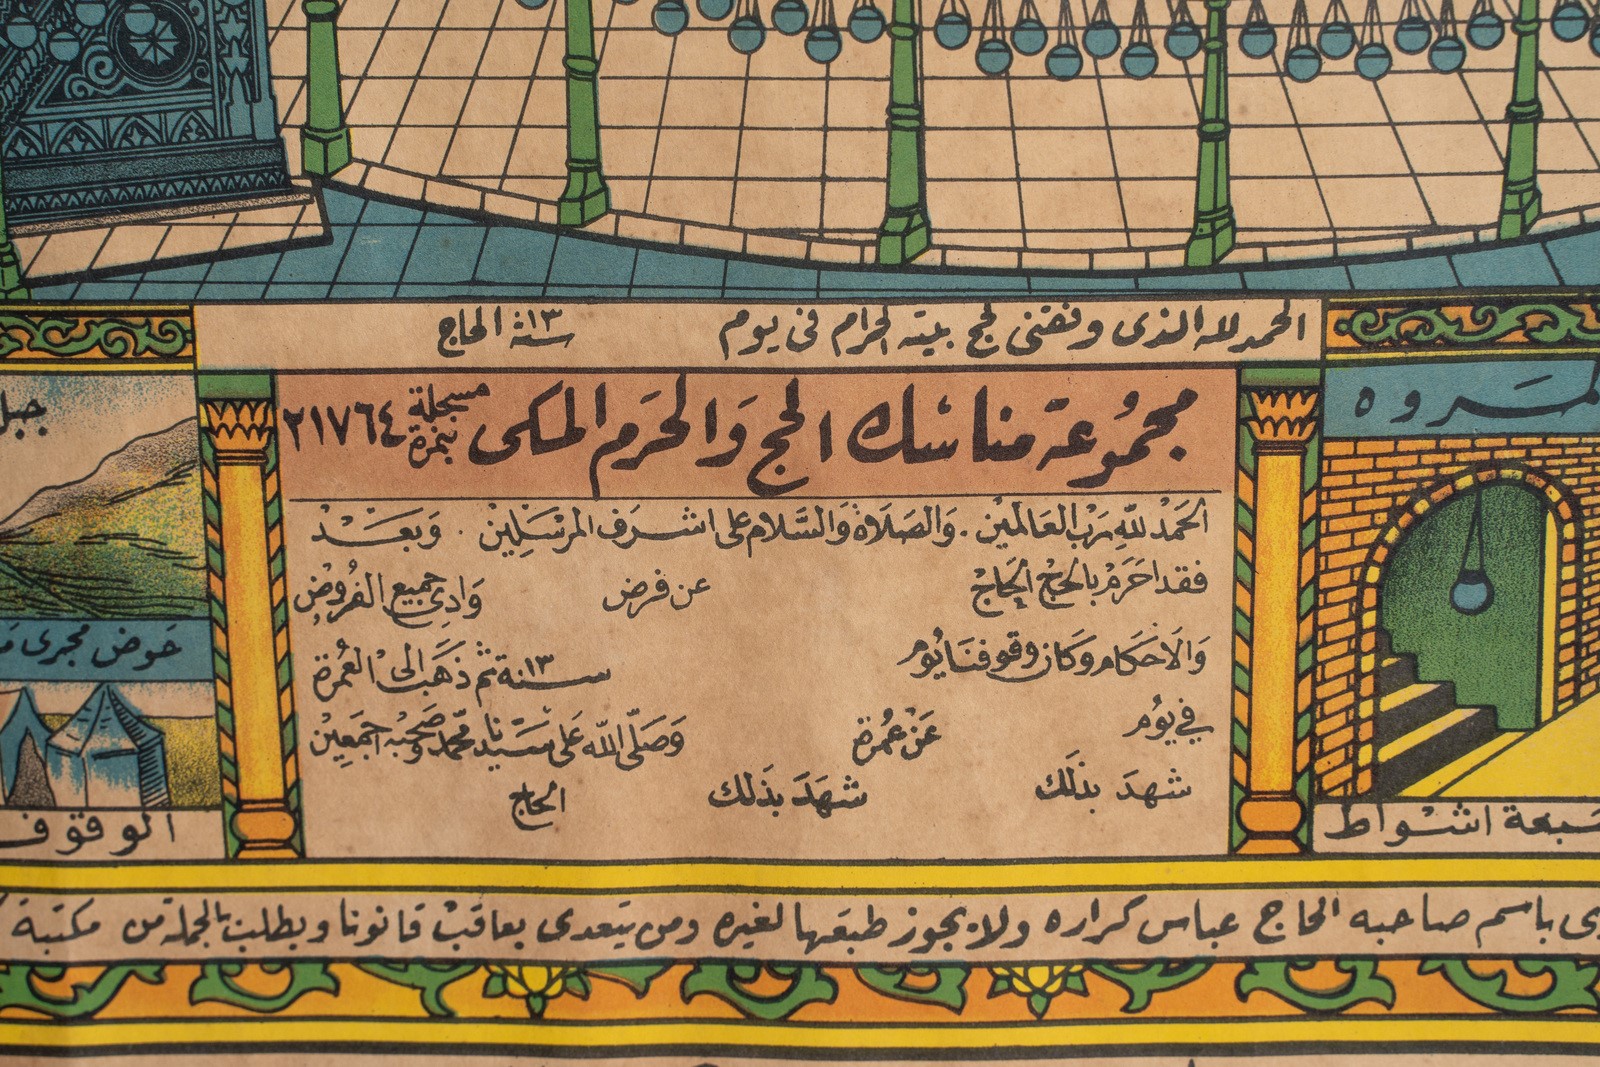 الحمد لله الذى وفقنى لحج بيته الحرام فى يوم سنة ١٣ الحاج
مجموعة مناسك الحج والحرم المكى مسجلة بنمرة ٢١٧٦٤
الحَمْدُ للّٰهِ رَبّ العَالمَيْن . وَالصَلاَة وَالسَّلام على اشرَف المرْسَلِيْن . وَبَعَـــدْ
فقد احَرمَ بالحَجْ الحَاجْ عن فرض وَادى جميع الفرُوضْ
وَالاحَكام وكَان وقوفنَا يوُم سـنة ١٣ ثم ذهَب الىْ العُمرة
في يوُم عَنْ عُمرة وَصَلّى اللّه عَلى سَيّدنا محّمد وصَحبْه اجمَعيْن
شهدَ بذلَك شهَدَ بذَلك الحاج
المـَروه
سَبعة اشـْواط
جبل
حَوض مجرى
الوقوف
باسم صاحبه الحاج عباس كراره ولا يجوز طبعَها لغيره ومن يتعدى يعاقبْ قانونا ويطلبْ بالجملة من مكتبة